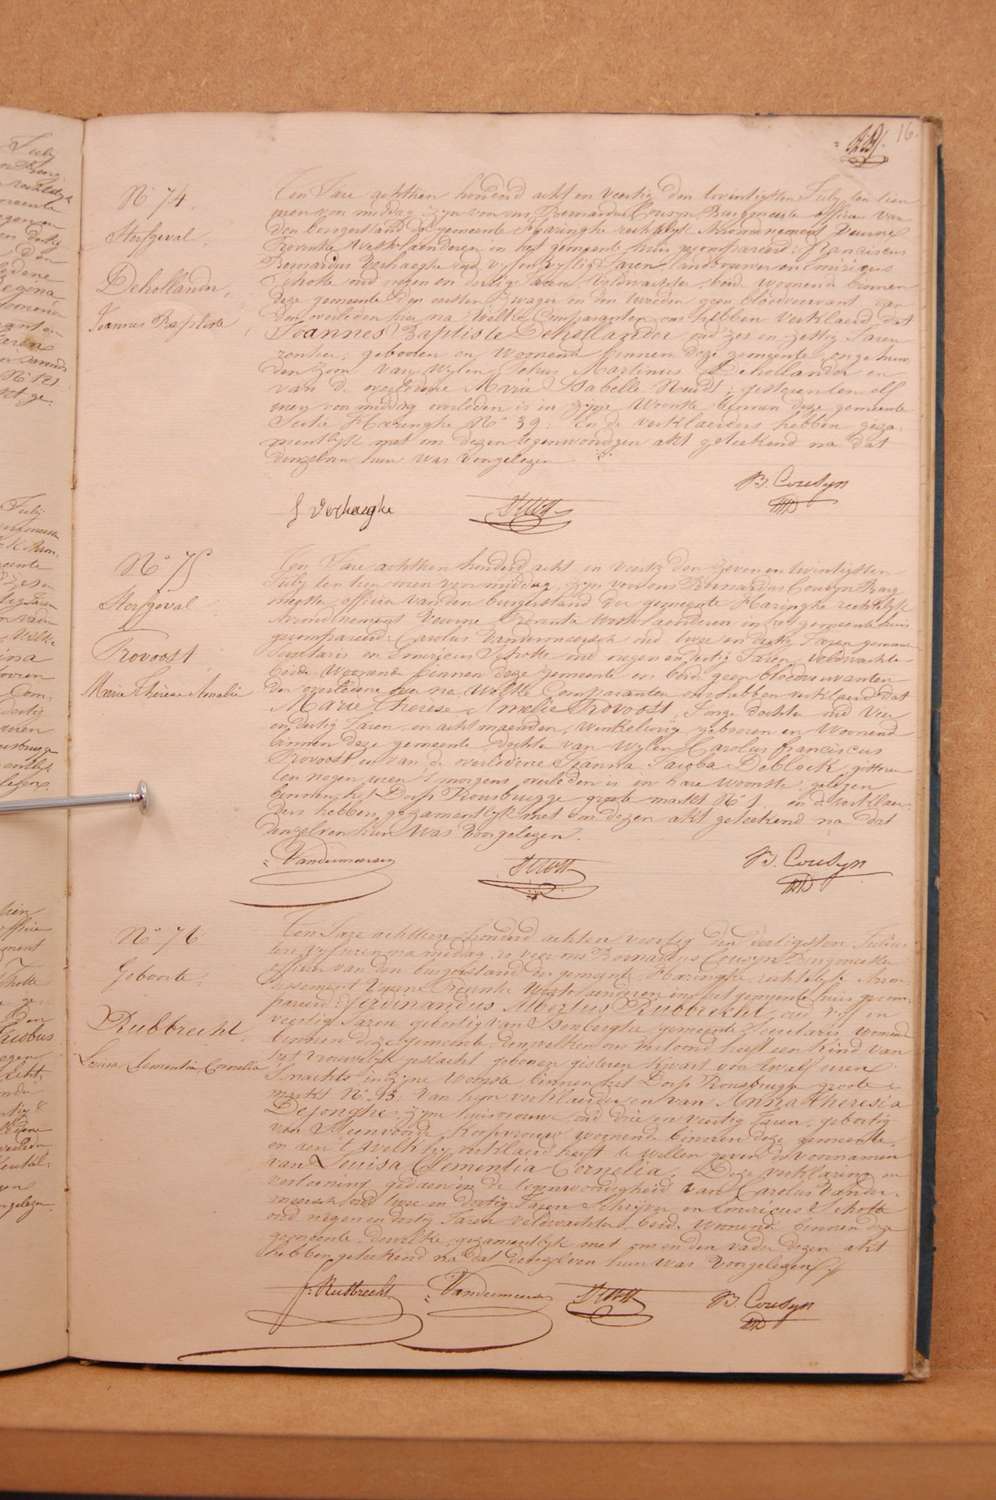 16.
N° 74.
Sterfgeval.
Dehollander,
Joannes Baptiste
Ten Jare achttien honderd acht en veertig den twintigsten July ten tien
uren voor middag zyn voor ons Bernardus Cousyn Burgmeester officier van
den burgerstand der gemeente Haringhe rechtelyk Arrondissement Veurne
Provintie Westvlaenderen in het gemeente huis gecompareerd: Franciscus
Bernardus Verhaeghe oud vyf en vyftig Jaren landbouwer en Americus
Schotte oud negen en dertig Jaren Veldwachter, beide woonende binnen
deze gemeente den eersten Zwager en den tweeden geen bloedverwant van
den overleden hier na, welke Comparanten ons hebben verklaerd dat
Joannes Baptiste Dehollander oud zes en zestig Jaren
rentier, geboren en woonende binnen deze gemeente, ongehuwd
den zoon van wylen Petrus Martinus Dehollander en
van d'overledene Marie Isabelle Ruidt; gisteren ten elf
uren voor middag overleden is in zyne Woonste binnen deze gemeente
Sectie Haringhe N° 39. En de verklaerders hebben geza-
mentlyk met ons dezen tegenwoordigen akt geteekend na dat
denzelven hun was voorgelezen.
F Verhaeghe
Schotte
B. Cousyn
N° 75
Sterfgeval
Provoost
Marie Thérèse Amelie
Ten Jare achttien honderd acht en veertig den zeven en twintigsten
July ten tien uren voor middag zyn voor ons Bernardus Cousyn Burg-
meester officier van den burgerstand der gemeente Haringhe rechtelyk
Arrondissement Veurne Provintie Westvlaenderen in het gemeente huis
gecompareerd: Carolus Vandermeersch oud twee en dertig Jaren gemeente
Secretaris en Americus Schotte oud negen en dertig Jaren, Veldwachter
beide Woonende binnen deze gemeente en beide geen bloedverwanten
der overledene hier na, Welke Comparanten ons hebben verklaerd dat
Marie Thérèse Amelie Provoost, Jonge dochter oud vier
en dertig Jaren en acht maenden, Winkelierig geboren en Woonende
binnen deze gemeente, dochter van Wylen Carolus Franciscus
Provoost en van de overledene Joanna Jacoba Deblock, gisteren
ten negen uren 's morgens, overleden is in hare Woonste gelegen
binnen het Dorp Rousbrugge groote markt N° 1. en de verklaer-
ders hebben gezamentlyk met ons dezen akt geteekend na dat
denzelven hun Was Voorgelezen.
Vandermeersch
Schotte
B. Cousyn
N° 76
Geboorte.
Rubbrecht.
Louisa Clementia Cornelia
Ten Jare achttien honderd acht en veertig den dertigsten Julius
ten vyf uren na middag, is voor ons Bernardus Cousyn Burgmeester
officier van den burgerstand der gemeente Haringhe rechtelyk Arron-
dissement Veurne Provintie Westvlaenderen in het gemeente huis gecom-
pareerd: Ferdinandus Albertus Rubbrecht, oud vyf en
veertig Jaren geboortig van gemeente Secretaris, woonende
binnen deze gemeente, denwelken ons vertoond heeft een Kind van
het vrouwelyk geslacht geboren gisteren kwart voor twalf uren
s'nachts in zyne Woonste binnen het Dorp Rousbrugge groote
markt N° 13. van hem verklaerder en van Anna Theresia
Dejonghe, zyne huisvrouw oud drie en veertig Jaren, geboortig
van Steenvoorde, Koopvrouw woonende binnen deze gemeente,
en aen 't welk hy verklaerd heeft te willen geven de voornamen
van Louisa Clementia Cornelia. Deze verklaring en
vertooning gedaen in de tegenwoordigheid van Carolus Vander-
meersch oud twee en dertig Jaren Schryver en Americus Schotte
oud negen en dertig Jaren veldwachter, beide woonende binnen deze
gemeente. dewelke gezamentlyk met ons en den vader dezen akt
hebben geteekend na dat denzelven hun was Voorgelezen
F. Rubbrecht
Vandermeersch
Schotte
B. Cousyn